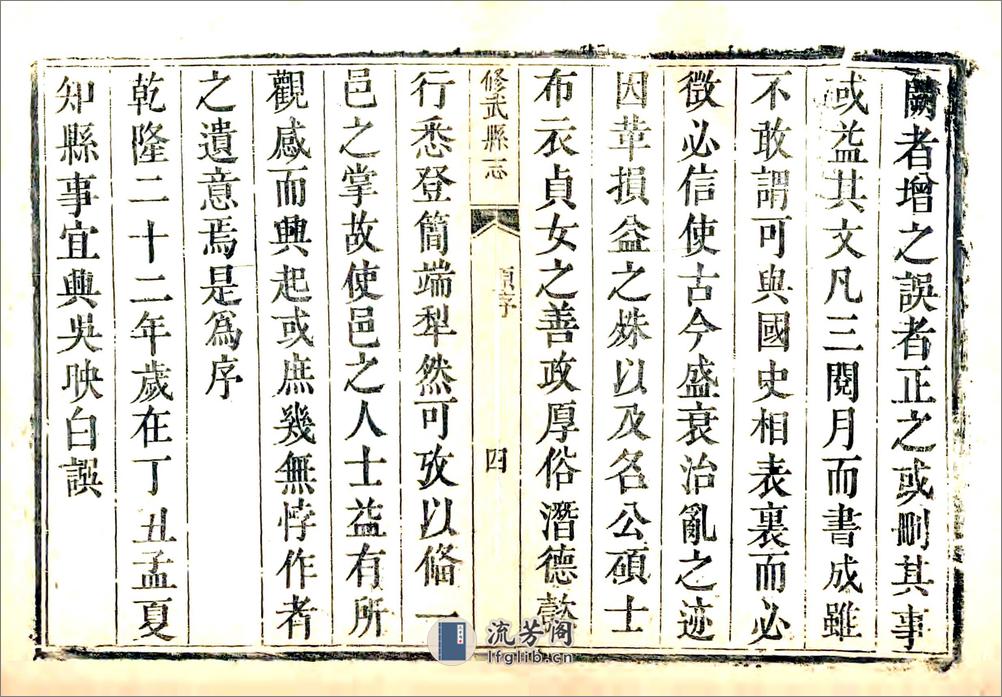 闕者增之誤者正之或刪其事
或益其文凡三閱月而書成雖
不敢謂可與國史相表裏而必
徵必信使古今盛衰治亂之迹
因革損益之殊以及名公碩士
布衣貞女之善政厚俗潛德懿
修武縣志
原序
四
行悉登簡端犁然可攷以俻一
邑之掌故使邑之人士益有所
觀感而興起或庶幾無悖作者
之遺意焉是爲序
乾隆二十二年歲在丁丑孟夏
知縣事宜興吳映白譔
流芳阁
lfglib.cn